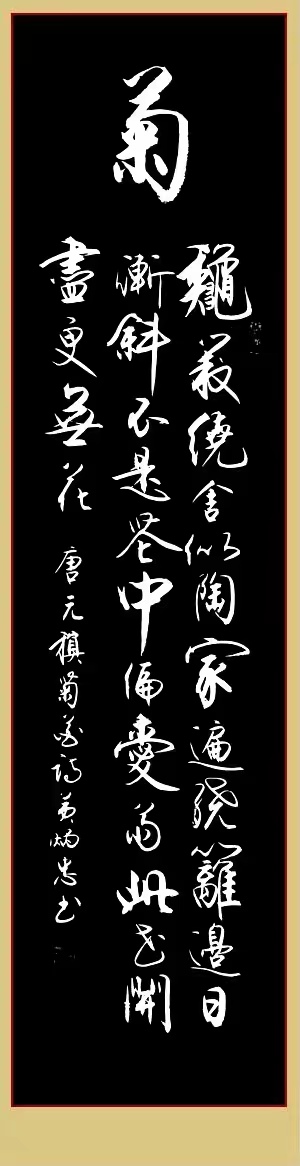 菊
龝叢繞舍似陶家遍繞籬邊日
漸斜不是花中偏愛菊此花開
盡更無花 唐元稹菊花詩 黄炳忠书